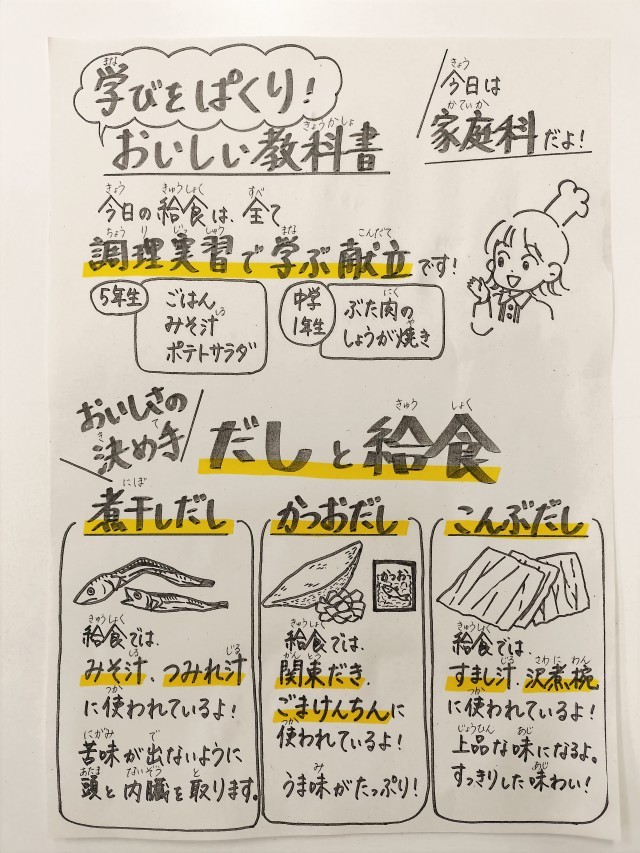 学びをぱくり!
おいしい教科書
今日は
家庭科だよ!
今日の給食は、全て
調理実習で学ぶ献立です!
5年生
ごはん
みそ汁
ポテトサラダ
中学
1年生
ぶた肉の
しょうが焼き
おいしさの
決め手
だしと給食
煮干しだし
給食では、
みそ汁、つみれ汁
に使われているよ!
苦味が出ないように
頭と内臓を取ります。
かつおだし
かつお
給食では、
関東だき、
ごまけんちんに
使われているよ!
うま味がたっぷり!
こんぶだし
給食では、
すまし汁、沢煮椀
に使われているよ!
上品な味になるよ。
すっきりした味わい!